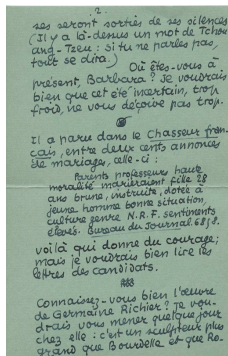 2.
ses seront sorties de ses silences
(Il y a là-dessus un mot de Tchou
ang-Tzeu : si tu ne parles pas,
tout se dira.)
Où êtes-vous à
présent, Barbara ? Je voudrais
bien que cet été incertain, trop
froid, ne vous déçoive pas trop.
Il a paru dans le Chasseur fran-
çais, entre deux cents annonces
de mariage, celle-ci :
Parents professeurs haute
moralité marieraient fille 28
ans brune, instruite, dotée à
jeune homme bonne situation,
culture genre N.R.F. sentiments
élevés. Bureau du Journal 6818.
voilà qui donne du courage;
mais je voudrais bien lire les
lettres des candidats.
Connaissez-vous bien l'œuvre
de Germaine Richier ? Je vou-
drais vous mener quelque jour
chez elle : c'est un sculpteur plus
grand que Bourdelle et que Ro-